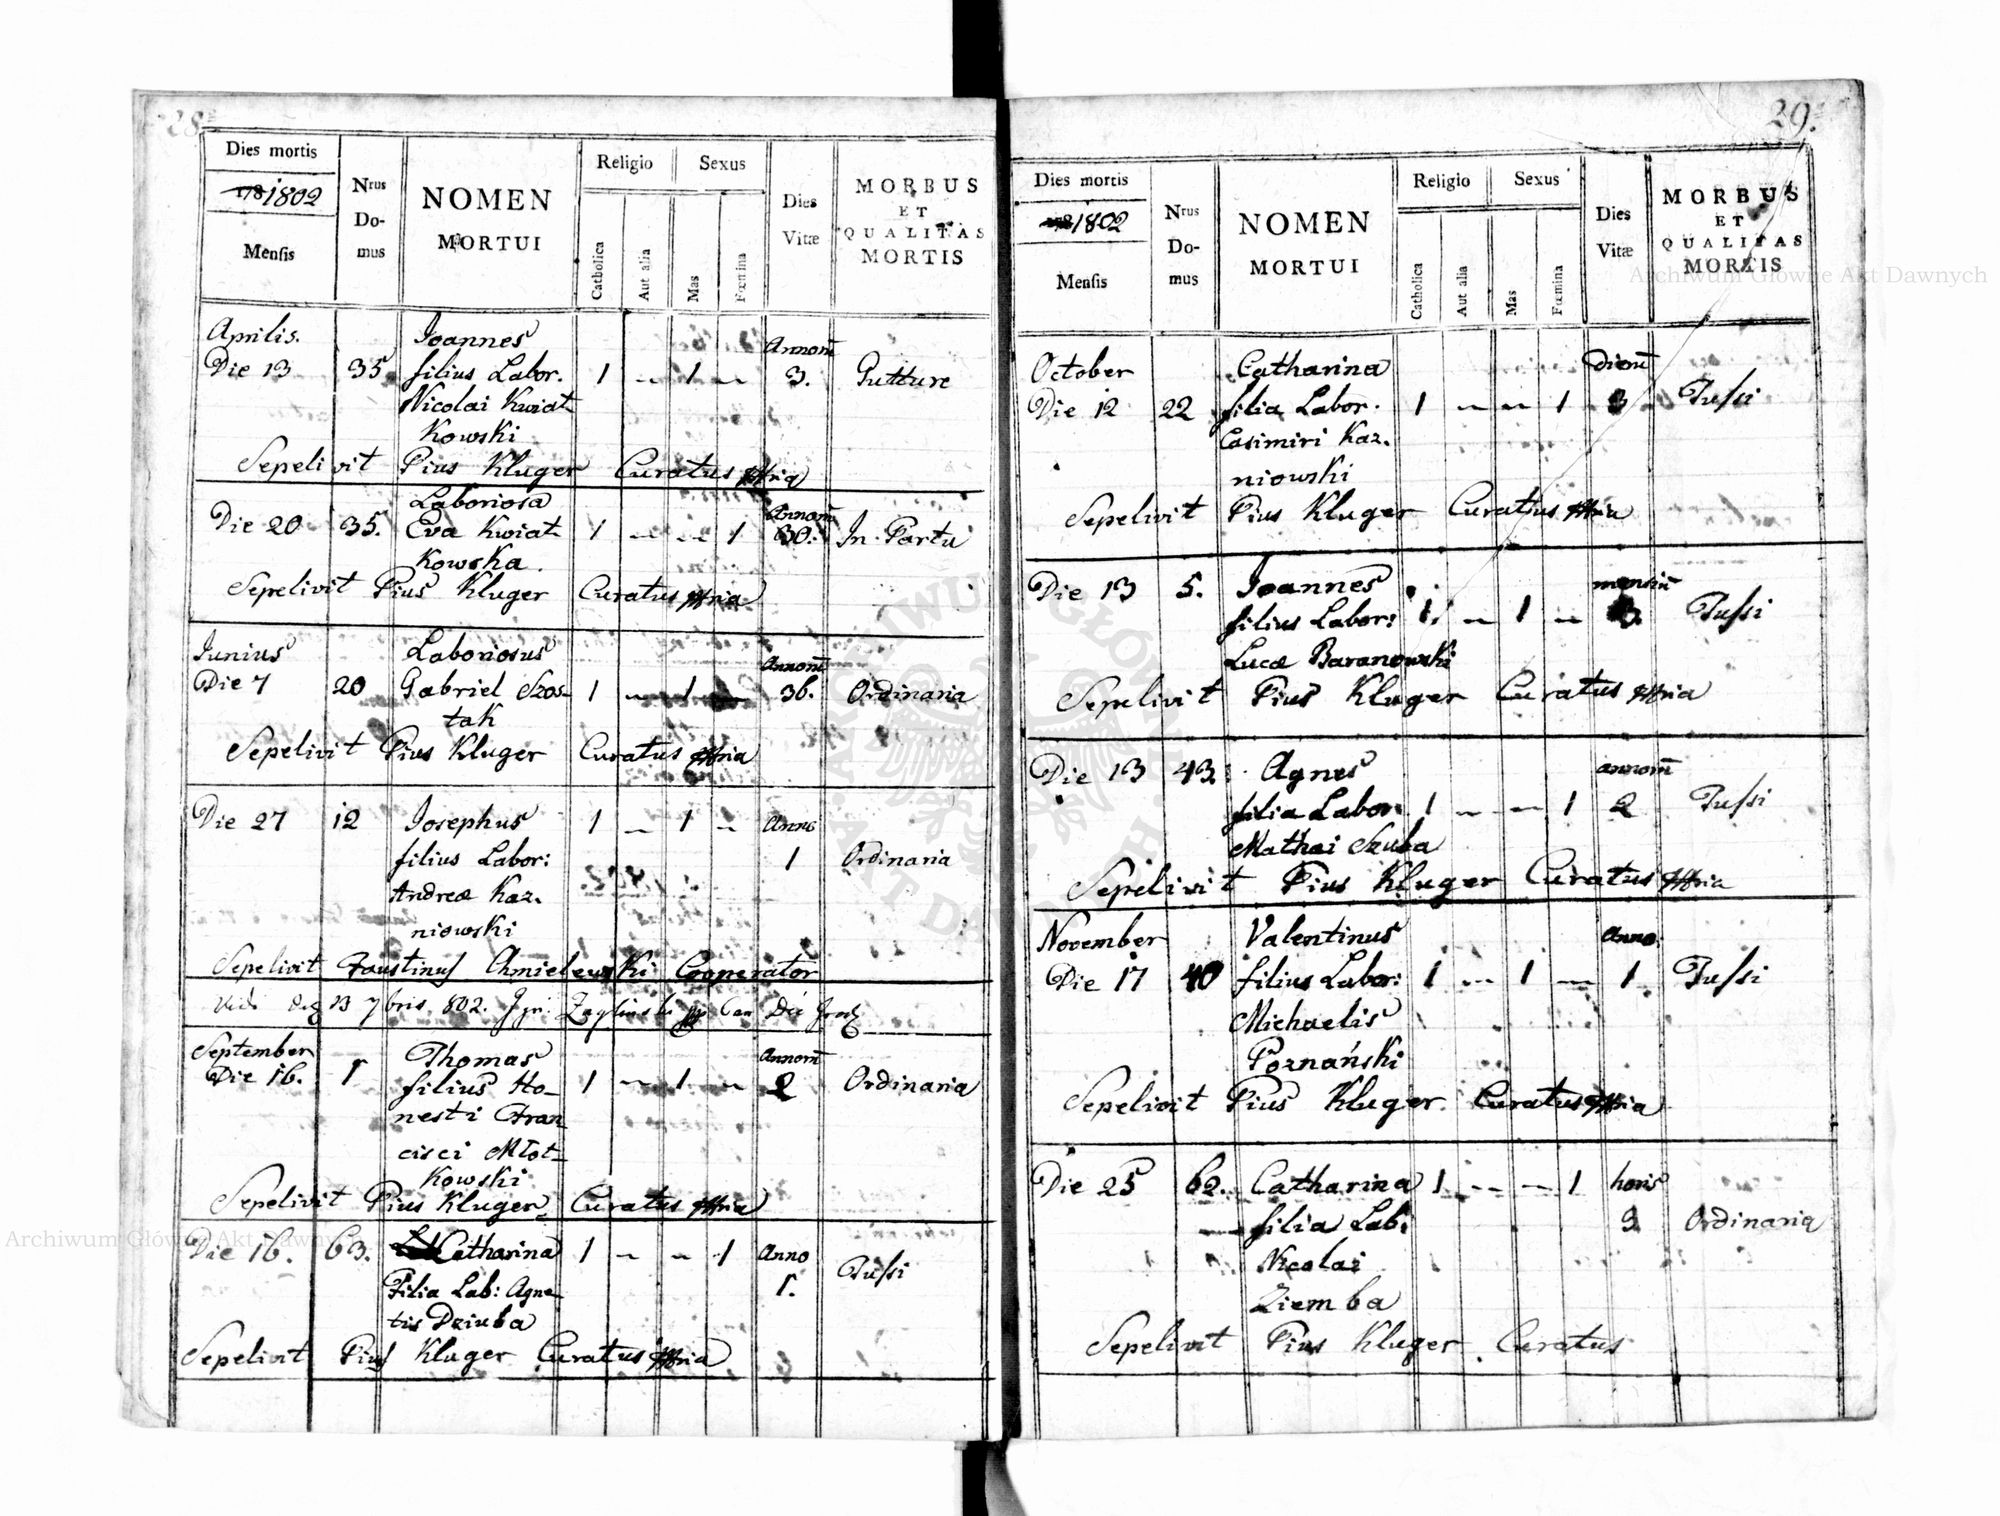 28
Dies mortis
1802
Mensis
Nrus
Do-
mus
NOMEN
MORTUI
Religio
Catholica
Aut alia
Sexus
Mas
Fœmina
Dies
Vitæ
MORBUS
ET
QUALITAS
MORTIS
Aprilis.
Joannes
Annorū
Die 13 35 filius Labor. 1 – 1 – 3. Gutture
Nicolai Kwiat
Kowski
Sepelivit Pius Kluger Curatus
Laboriosa
Annorū
Die 20 35. Eva Kwiat 1 – – 1 30. In Partu
Kowska.
Sepelivit Pius Kluger Curatus
Junius Laboriosus
Annorū
Die 7 20 Gabriel Szos- 1 – 1 – 36. Ordinaria
tak
Sepelivit Pius Kluger Curatus
Die 27 12 Josephus 1 – 1 – Anno
filius Labor: 1 Ordinaria
Andreæ Kaz.
niowski
Sepelivit Faustinus Chmielewski Cooperator
13 7bris 802.
September Thomas Annorū
Die 16. 1 filius Ho- 1 – 1 – 2 Ordinaria
nesti Fran
cisci Młot-
Kowski
Sepelivit Pius Kluger Curatus
Die 16. 63. Catharina 1 – – 1 Anno
Filia Lab: Agne- 1. Tussi
tis Dziuba
Sepelivit Pius Kluger Curatus
29.
Dies mortis
1802
Mensis
Nrus
Do-
mus
NOMEN
MORTUI
Religio
Catholica
Aut alia
Sexus
Mas
Fœmina
Dies
Vitæ
MORBUS
ET
QUALITAS
MORTIS
October Catharina Dierū
Die 12 22 filia Labor. 1 – – 1 3 Tussi
Casimiri Kaz.
niowski
Sepelivit Pius Kluger Curatus
Die 13 5. Joannes mensiū
filius Labor: 1 – 1 – Tussi
Lucæ Baranowski
Sepelivit Pius Kluger Curatus
Die 13 43. Agnes annorū
filia Labor: 1 – – 1 2 Tussi
Mathai Szuba
Sepelivit Pius Kluger Curatus
November Valentinus Anno
Die 17 40 filius Labor: 1 – 1 – 1 Tussi
Michaelis
Poznański
Sepelivit Pius Kluger Curatus
Die 25 62. Catharina 1 – – 1 horis
filia Lab: 3 Ordinaria
Nicolai
Ziemba
Sepelivit Pius Kluger Curatus
Archiwum Główne Akt Dawnych
Archiwum Główne Akt Dawnych